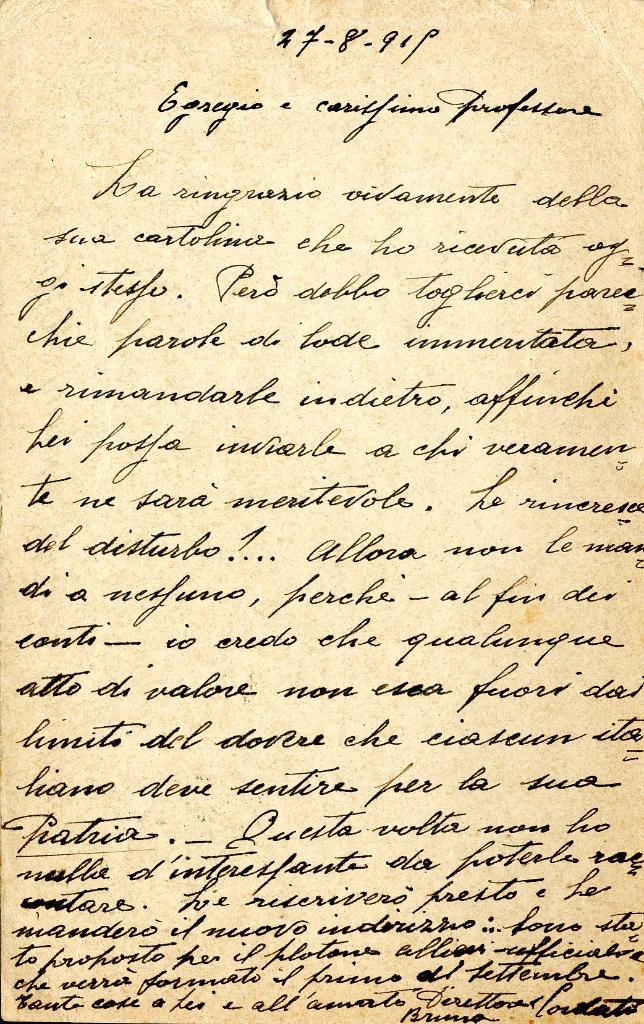 27-8-915
Egregio e carissimo professore
La ringrazio vivamente della
sua cartolina che ho ricevuta og=
gi stesso. Però debbo toglierci parec=
chie parole di lode immeritata,
e rimandarle indietro, affinchè
Lei possa inviarle a chi veramen=
te ne sarà meritevole. Le rincresce
del disturbo!... Allora non le man=
di a nessuno, perchè - al fin dei
conti - io credo che qualunque
atto di valore non esca fuori dai
limiti del dovere che ciascun ita=
liano deve sentire per la sua
Patria. - Questa volta non ho
nulla d'interessante da poterle rac=
contare. Le riscriverò presto e Le
manderò il nuovo indirizzo... Sono sta=
to proposto per il plotone allievi-ufficiali
che verrà formato il primo di Settembre.
Tante cose a Lei e all'amato Direttore
Bruno